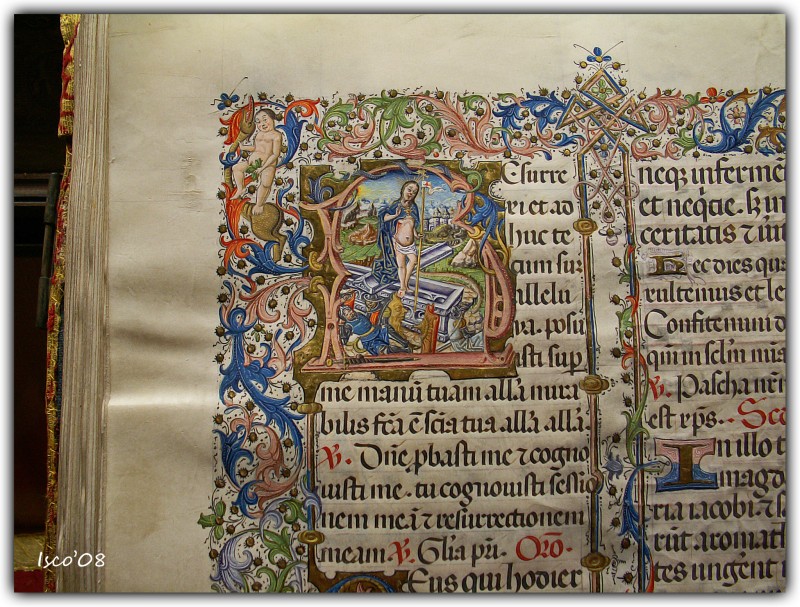 Esurre
xi et ad
huc te
cum sum
allelu
ya. posu
isti sup
me manū tuam alla mira
bilis fcā ē sciā tua alla alla
V. Dnē pbasti me ⁊ cogno
uisti me. tu cognouisti sessio
nem meā ⁊ resurrectionem
meam. V. Glia pri. Oro.
Eus qui hodier
neqз in ferme
et neqcie. s in
ceritatis ⁊ uit
Hec dies qua
exultemus et le
Confitemini d
qm in sclm mis
V. Pascha nrm
est xps. Seq
In illo t
magd
ria iacobi ⁊ sa
rūt aromath
tes ungent
Isco'08